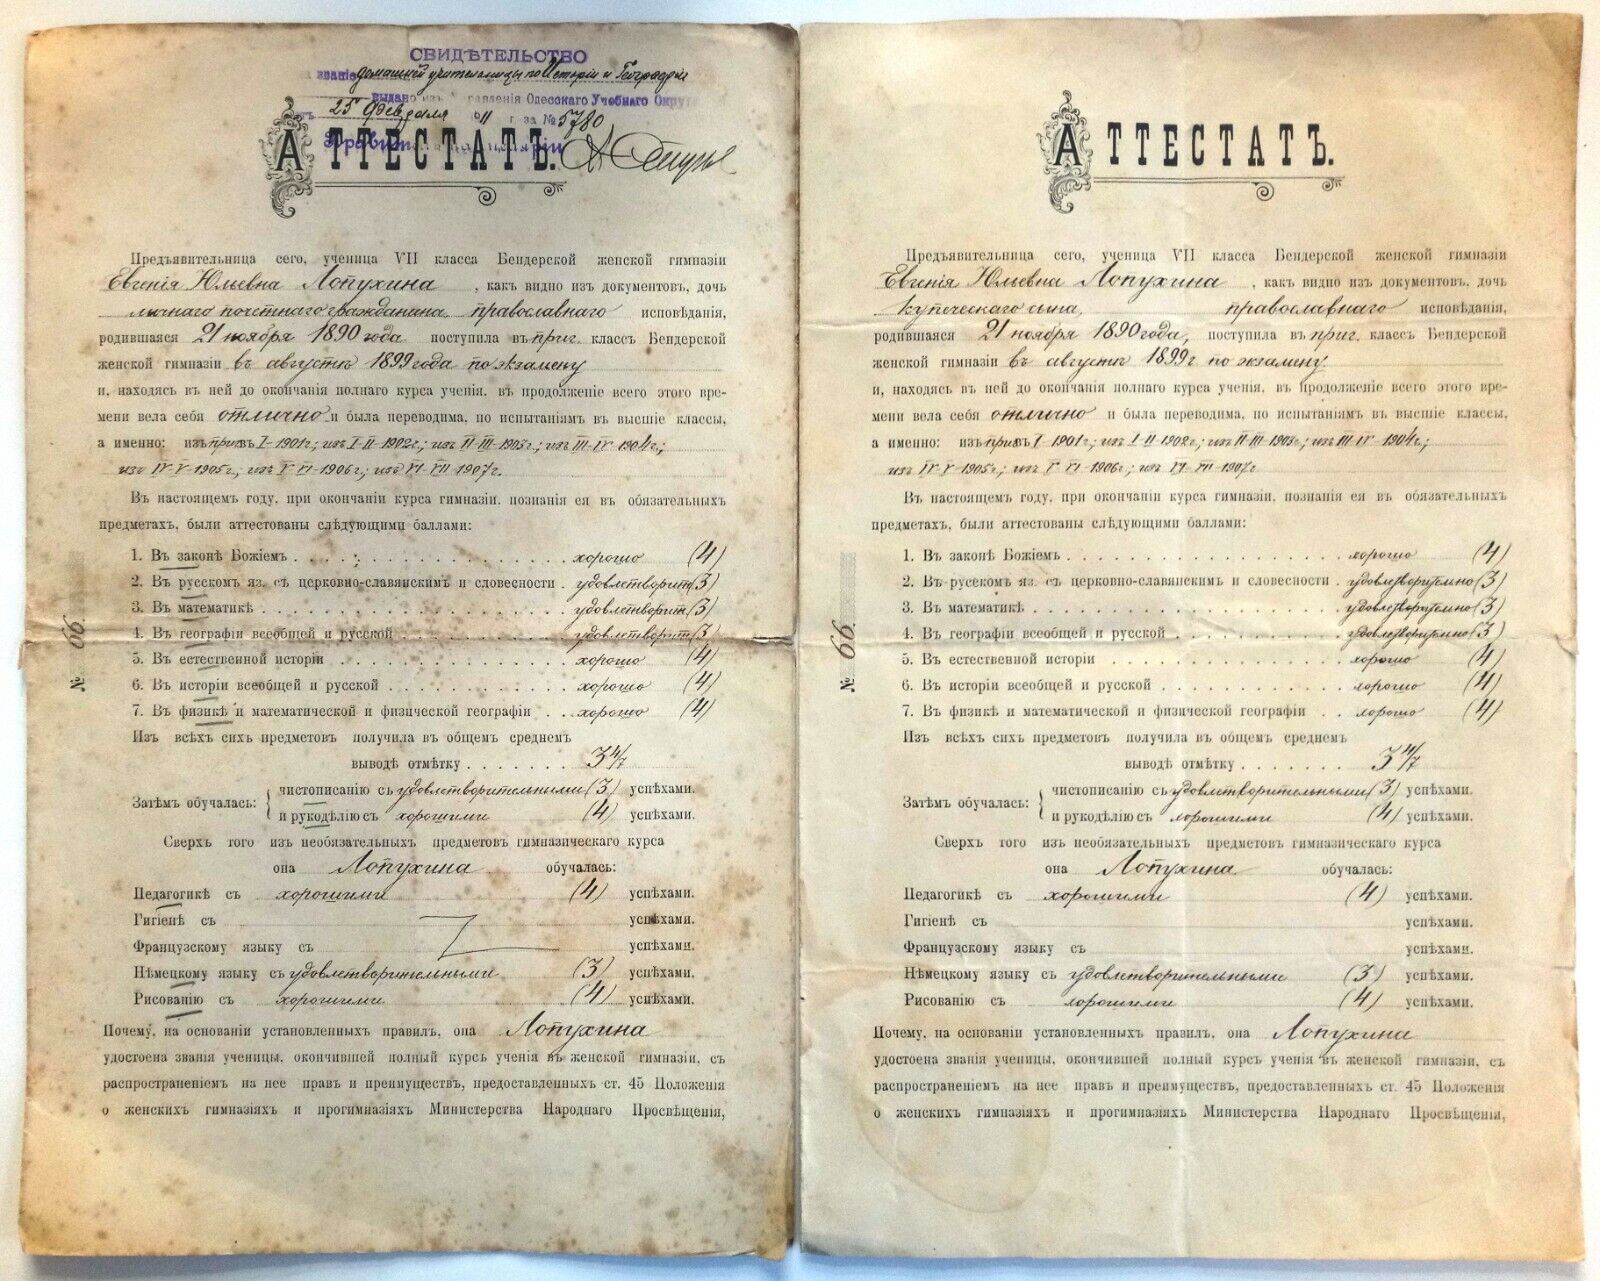 СВИДѢТЕЛЬСТВО
званіе домашней учительницы по Исторіи и Географіи
выдано изъ Управленія Одесскаго Учебнаго Округа
25 февраля 11 г. за № 5780
АТТЕСТАТЪ.
Предъявительница сего, ученица VII класса Бендерской женской гимназіи
Евгенія Юльевна Лопухина, какъ видно изъ документовъ, дочь
личнаго почетнаго гражданина, православнаго исповѣданія,
родившаяся 21 ноября 1890 года поступила въ приг. классъ Бендерской
женской гимназіи въ августѣ 1899 года по экзамену
и, находясь въ ней до окончанія полнаго курса ученія, въ продолженіе всего этого вре-
мени вела себя отлично и была переводима, по испытаніямъ въ высшіе классы,
а именно: изъ приг. въ I-1901 г.; изъ I-II-1902 г.; изъ II-III-1903 г.; изъ III-IV-1904 г.;
изъ IV-V-1905 г.; изъ V-VI-1906 г.; изъ VI-VII-1907 г.
Въ настоящемъ году, при окончаніи курса гимназіи, познанія ея въ обязательныхъ
предметахъ, были аттестованы слѣдующими баллами:
1. Въ законѣ Божіемъ хорошо (4)
2. Въ русскомъ яз. съ церковно-славянскимъ и словесности удовлетворит. (3)
3. Въ математикѣ удовлетворит. (3)
4. Въ географіи всеобщей и русской удовлетворит. (3)
5. Въ естественной исторіи хорошо (4)
6. Въ исторіи всеобщей и русской хорошо (4)
7. Въ физикѣ и математической и физической географіи хорошо (4)
Изъ всѣхъ сихъ предметовъ получила въ общемъ среднемъ
выводѣ отмѣтку 3 4/7
Затѣмъ обучалась: чистописанію съ удовлетворительными (3) успѣхами.
и рукодѣлію съ хорошими (4) успѣхами.
Сверхъ того изъ необязательныхъ предметовъ гимназическаго курса
она Лопухина обучалась:
Педагогикѣ съ хорошими (4) успѣхами.
Гигіенѣ съ успѣхами.
Французскому языку съ успѣхами.
Нѣмецкому языку съ удовлетворительными (3) успѣхами.
Рисованію съ хорошими (4) успѣхами.
Почему, на основаніи установленныхъ правилъ, она Лопухина
удостоена званія ученицы, окончившей полный курсъ ученія въ женской гимназіи, съ
распространеніемъ на нее правъ и преимуществъ, предоставленныхъ ст. 45 Положенія
о женскихъ гимназіяхъ и прогимназіяхъ Министерства Народнаго Просвѣщенія,
№ 66.
АТТЕСТАТЪ.
Предъявительница сего, ученица VII класса Бендерской женской гимназіи
Евгенія Юльевна Лопухина, какъ видно изъ документовъ, дочь
купеческаго сына, православнаго исповѣданія,
родившаяся 21 ноября 1890 года, поступила въ приг. классъ Бендерской
женской гимназіи въ августѣ 1899 г по экзамену
и, находясь въ ней до окончанія полнаго курса ученія, въ продолженіе всего этого вре-
мени вела себя отлично и была переводима, по испытаніямъ въ высшіе классы,
а именно: изъ приг. въ I-1901 г.; изъ I-II-1902 г.; изъ II-III-1903 г.; изъ III-IV-1904 г.;
изъ IV-V-1905 г.; изъ V-VI-1906 г.; изъ VI-VII-1907 г.
Въ настоящемъ году, при окончаніи курса гимназіи, познанія ея въ обязательныхъ
предметахъ, были аттестованы слѣдующими баллами:
1. Въ законѣ Божіемъ хорошо (4)
2. Въ русскомъ яз. съ церковно-славянскимъ и словесности удовлетворительно (3)
3. Въ математикѣ удовлетворительно (3)
4. Въ географіи всеобщей и русской удовлетворительно (3)
5. Въ естественной исторіи хорошо (4)
6. Въ исторіи всеобщей и русской хорошо (4)
7. Въ физикѣ и математической и физической географіи хорошо (4)
Изъ всѣхъ сихъ предметовъ получила въ общемъ среднемъ
выводѣ отмѣтку 3 4/7
Затѣмъ обучалась: чистописанію съ удовлетворительными (3) успѣхами.
и рукодѣлію съ хорошими (4) успѣхами.
Сверхъ того изъ необязательныхъ предметовъ гимназическаго курса
она Лопухина обучалась:
Педагогикѣ съ хорошими (4) успѣхами.
Гигіенѣ съ успѣхами.
Французскому языку съ успѣхами.
Нѣмецкому языку съ удовлетворительными (3) успѣхами.
Рисованію съ хорошими (4) успѣхами.
Почему, на основаніи установленныхъ правилъ, она Лопухина
удостоена званія ученицы, окончившей полный курсъ ученія въ женской гимназіи, съ
распространеніемъ на нее правъ и преимуществъ, предоставленныхъ ст. 45 Положенія
о женскихъ гимназіяхъ и прогимназіяхъ Министерства Народнаго Просвѣщенія,
№ 66.